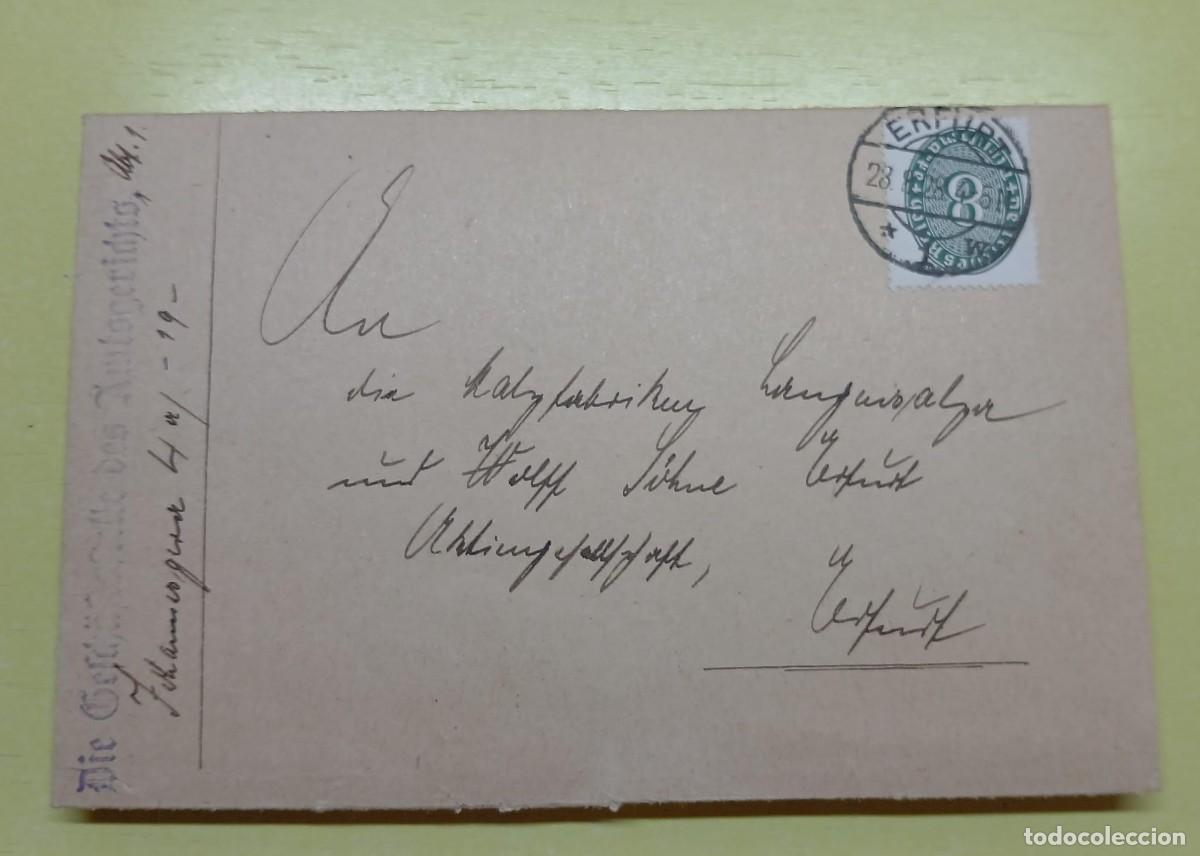 Die Geschäftsstelle des Amtsgerichts, Abt. 1.
4 19-
ERFURT
28.
8
* *
An
die Malzfabriken Langensalza
und Wolff Söhne Erfurt
Aktiengesellschaft,
Erfurt
todocoleccion